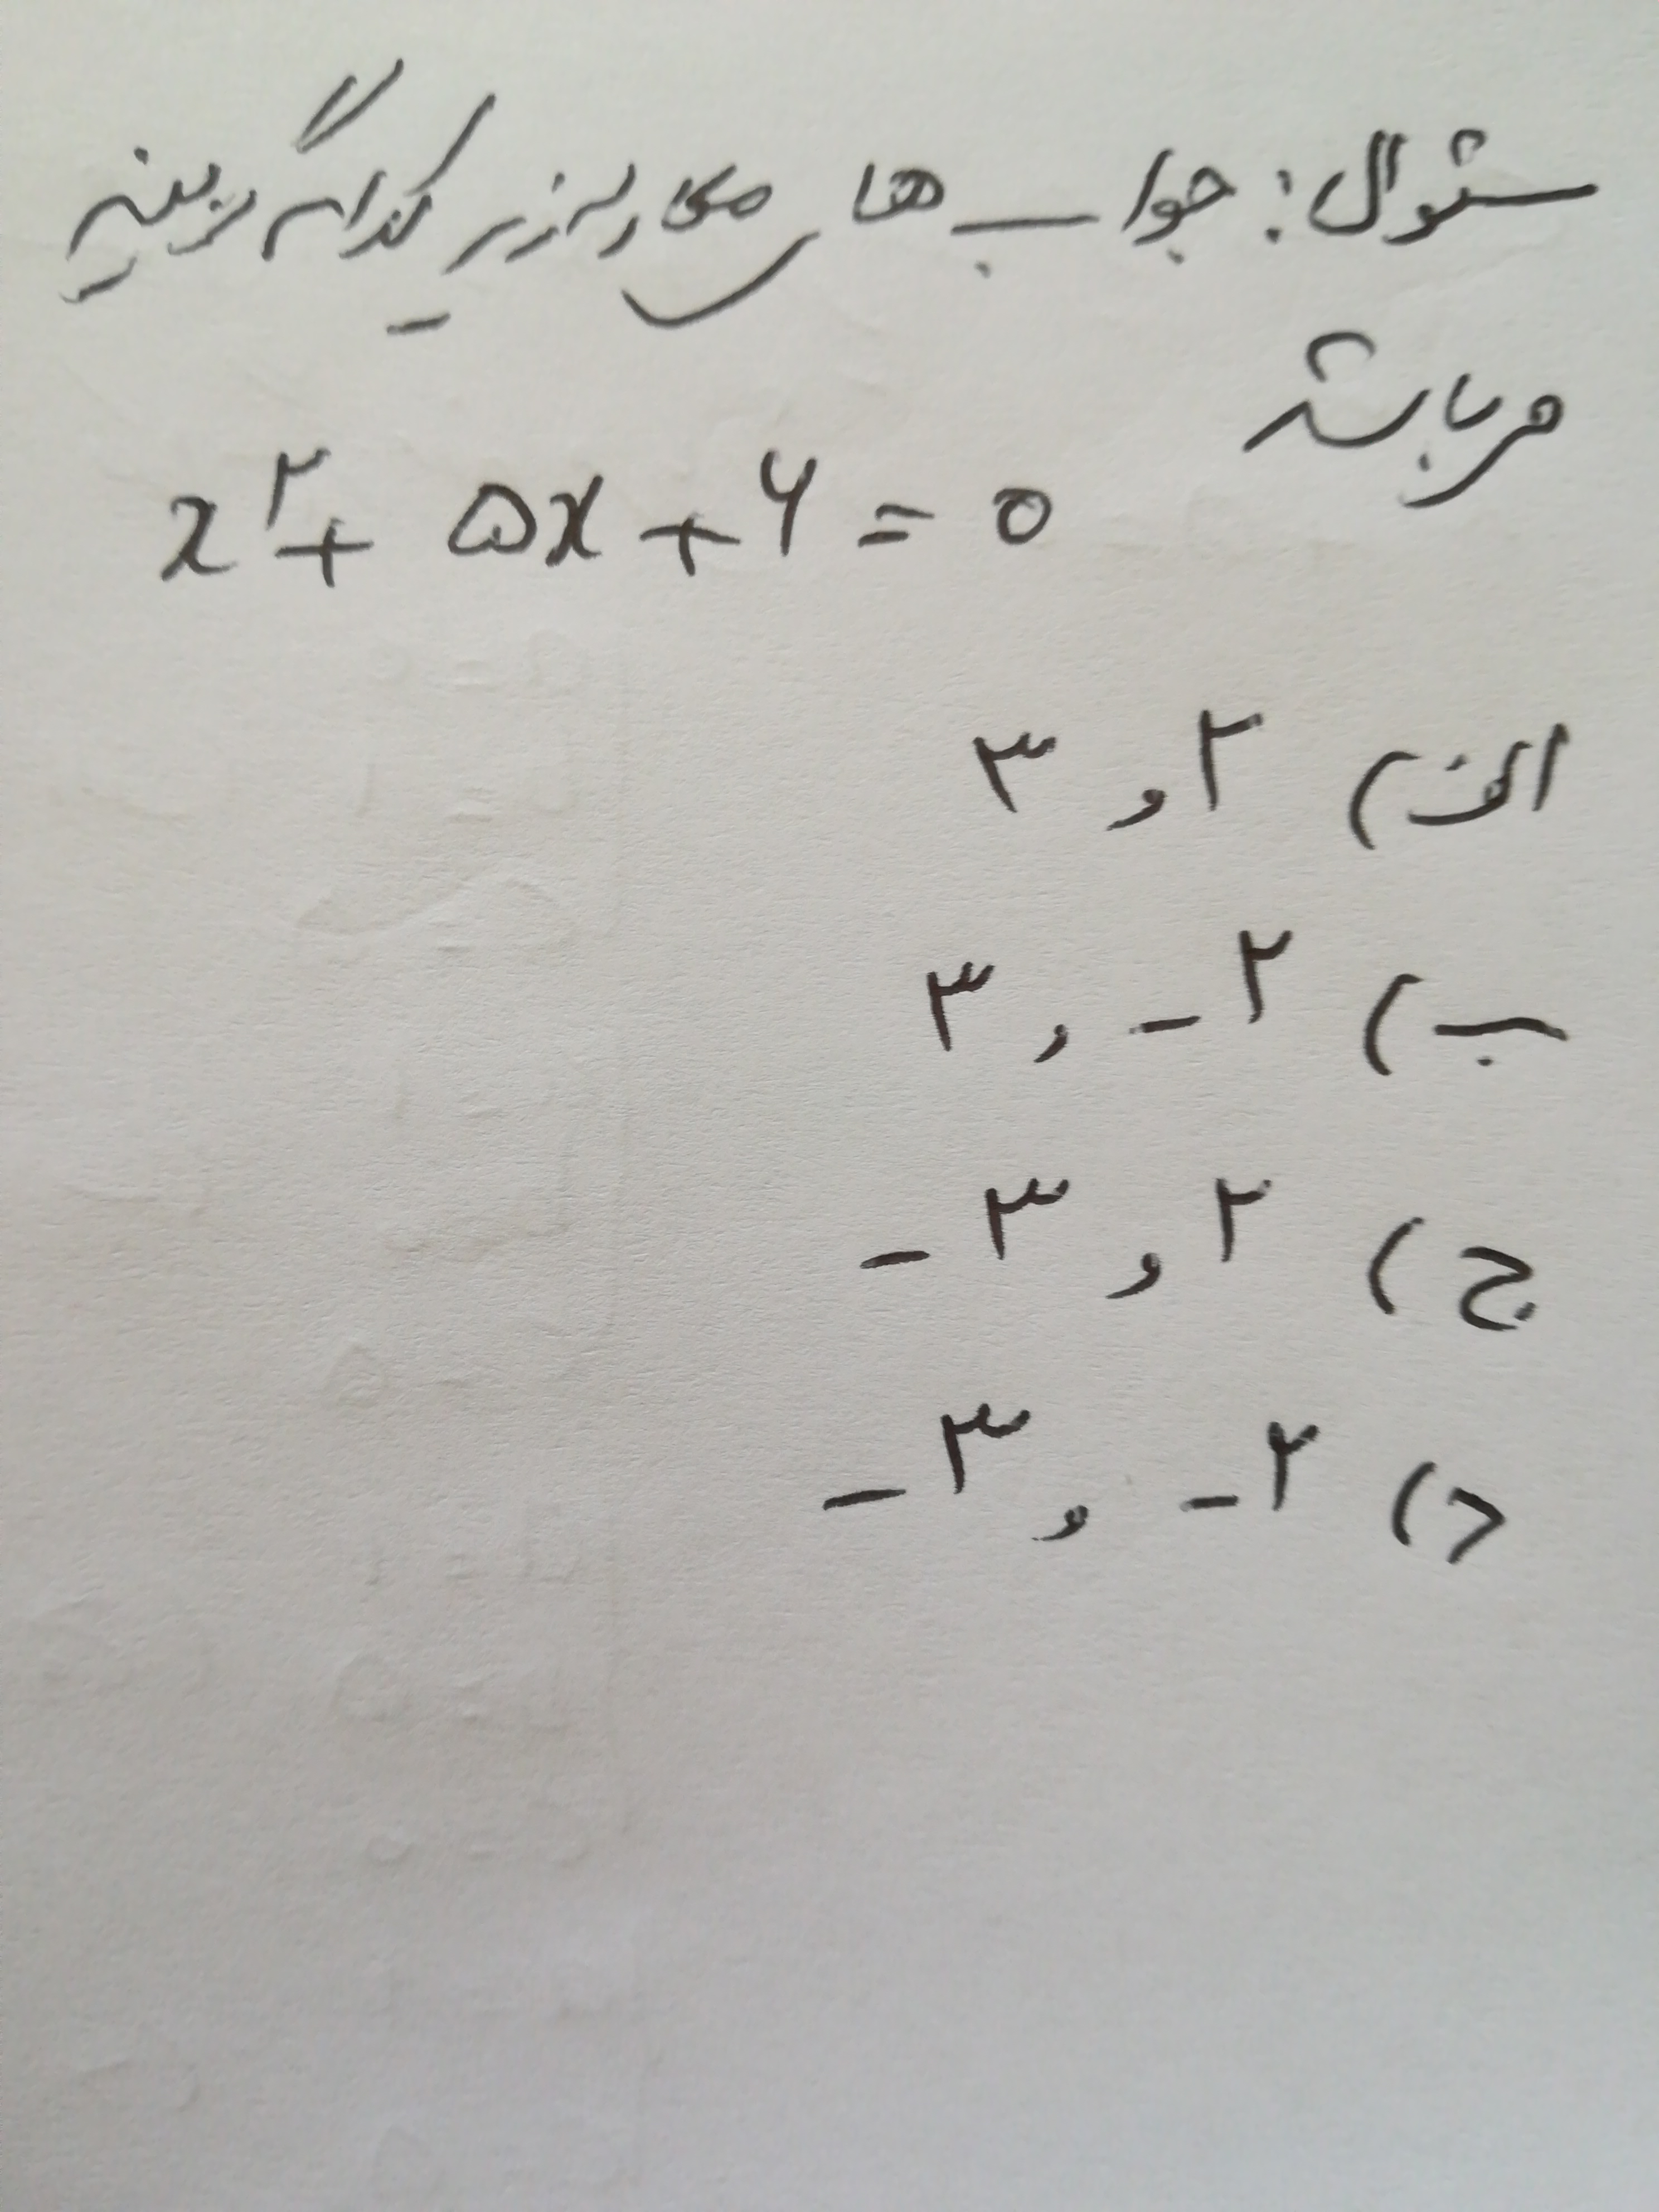 سئوال: جواب های معادله زیر کدام گزینه
می باشد
x^۲ + ۵x + ۶ = ۰
الف) ۲ و ۳
ب) ۲- و ۳
ج) ۲ و ۳-
د) ۲- و ۳-